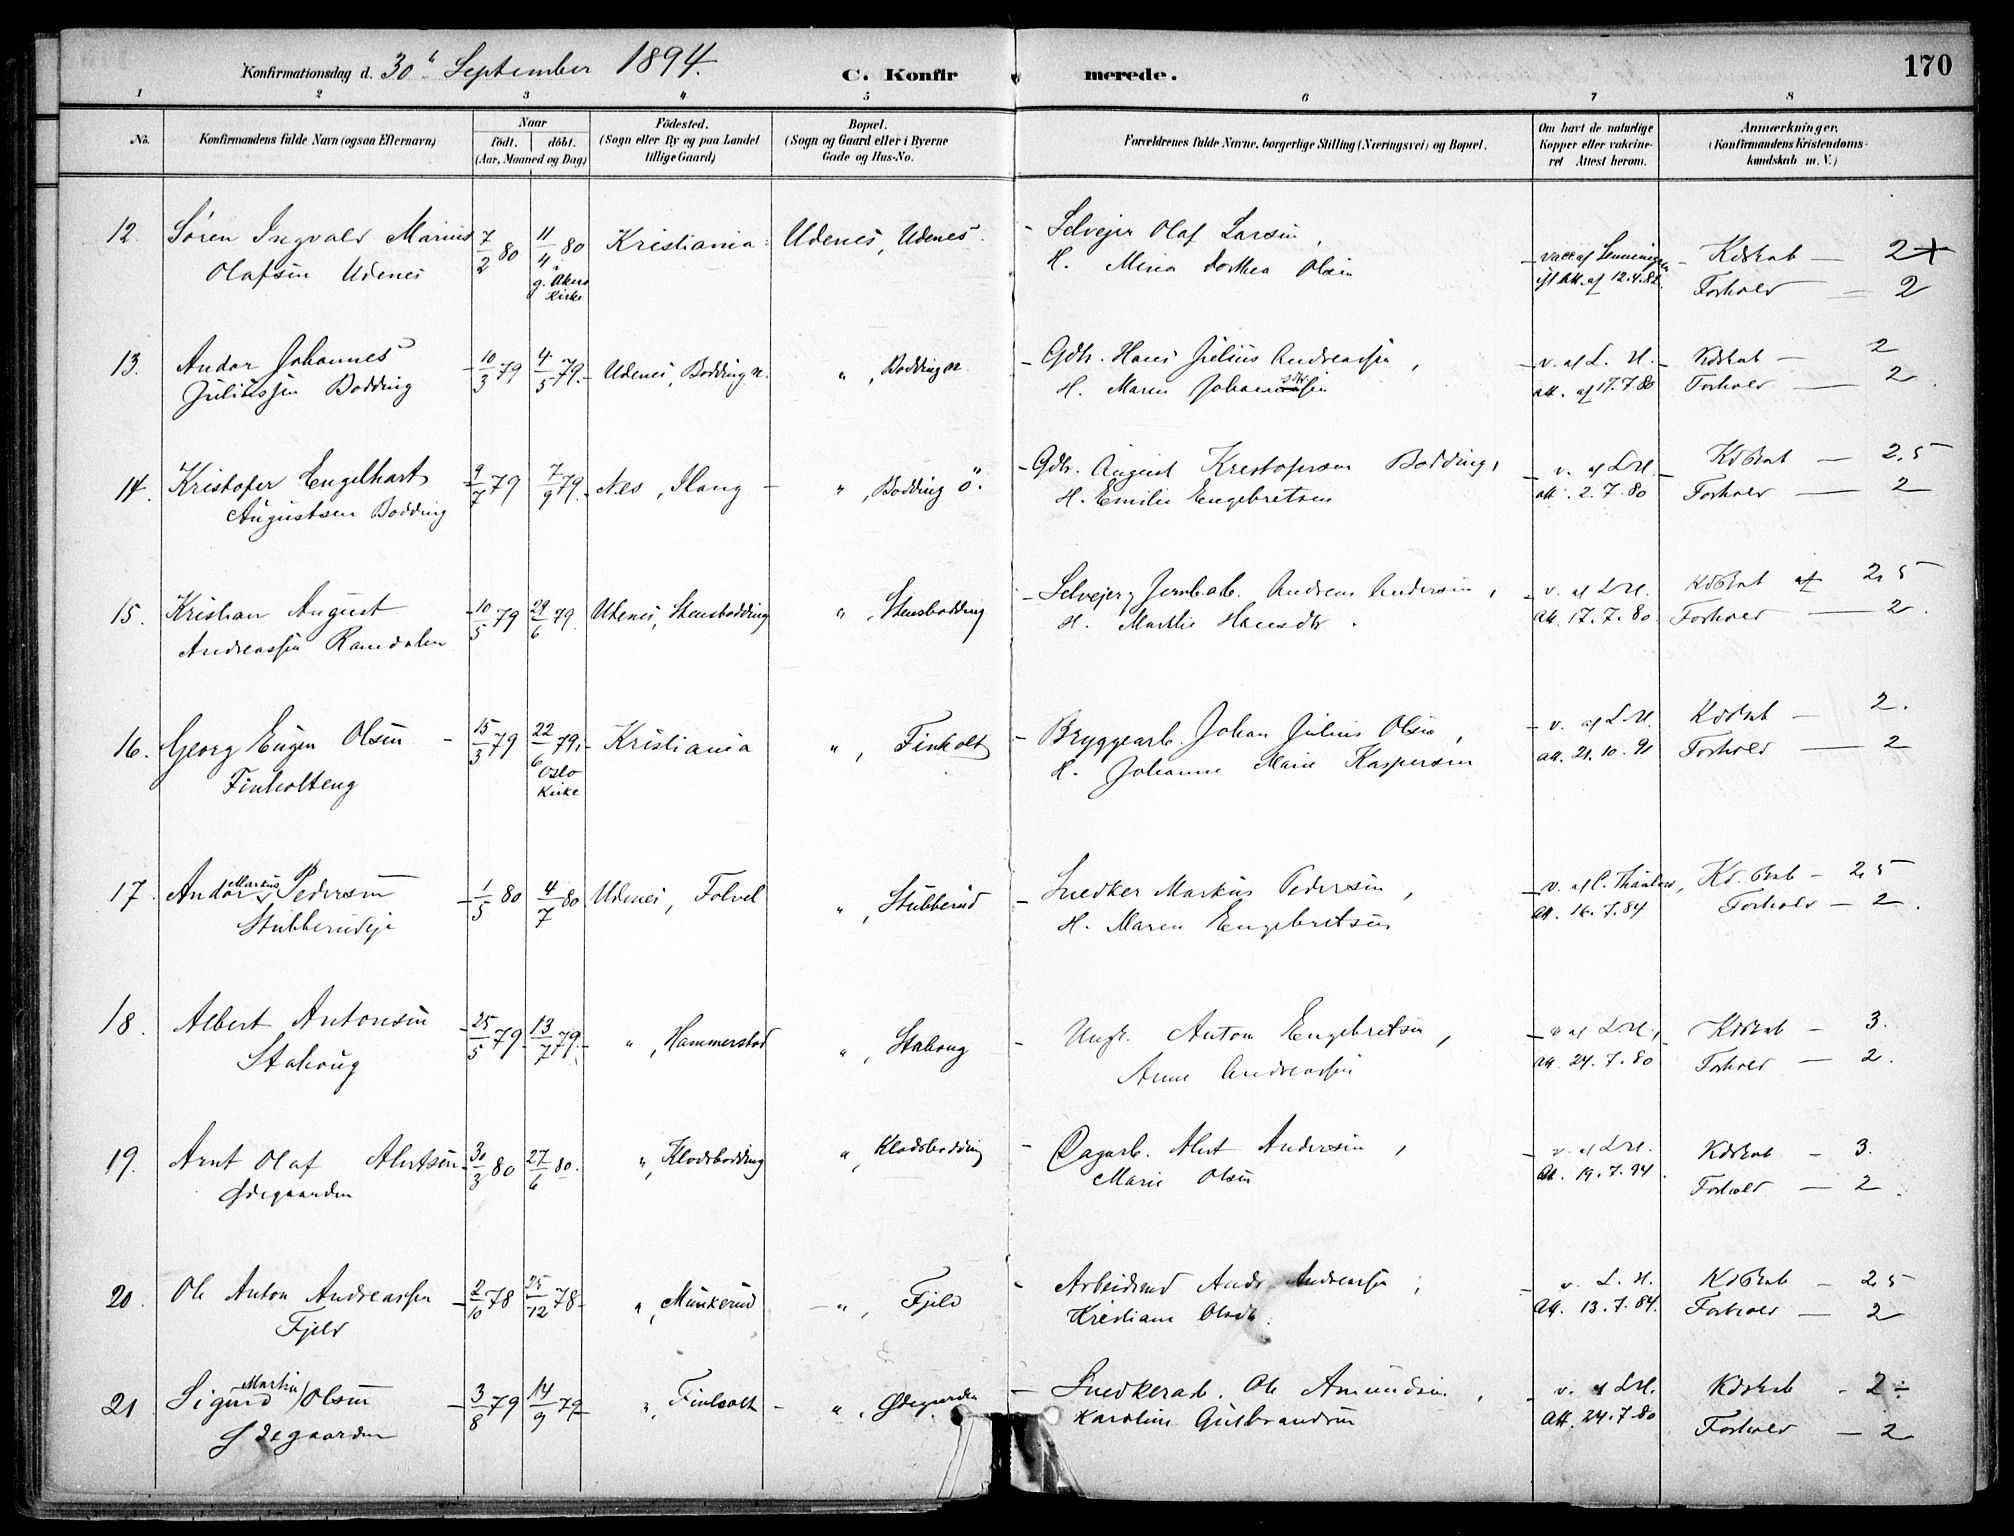 Konfirmationsdag d. 30te September 1894.
C. Konfirmerede.
170
1 2 3 4 5 6 7 8
No.
Konfirmandens fulde Navn (ogsaa Efternavn)
Naar
födt. döbt.
(Aar, Maaned og Dag)
Födested.
(Sogn eller By og paa Landet
tillige Gaard)
Bopæl.
(Sogn og Gaard eller i Byerne
Gade og Hus-No.
Forældrenes fulde Navne, borgerlige Stilling (Næringsvei) og Bopæl.
Om havt de naturlige
Kopper eller vakcine-
ret Attest herom.
Anmærkninger.
(Konfirmandens Kristendoms-
kundskab m. V.)
12. Søren Ingvald Marius 7/2 80 11/4 80 Kristiania Udenes, Udenes. - Selveier Olaf Larsen,
Olafsen Udenes g. Akers Kirke H. Mina Dorthea Olsen
vacc. af
iflg Att. af 12.4.82.
Kdskab — 2+
Forhold — 2
13. Andor Johannes 10/3 79 4/5 79. Udenes, Bodding n. " , Bodding n. - Gdb. Hans Julius Andreassen,
Juliussen Bodding H. Maren
v. af L. H.
att. af 17.7.80
Kdskab — 2
Forhold — 2.
14. Kristofer Engelhart 9/7 79 7/9 79. Nes, Ilang — " , Bodding ö. - Gdb. August Kristofersen Bodding,
Augustsen Bodding H. Emilie Engebretsen
v. af L.H.
att. 2.7.80
Kdskab — 2,5
Forhold — 2
15. Kristian August 10/5 79 29/6 79. Udenes, Stensbodding " , Stensbodding - Selveier, Jernbarb. Andreas Andersen,
Andreassen Ramdalen H. Mathie Hansdtr.
v. af L.H.
Att. 17.7.80
Kdskab 2,5
Forhold — 2.
16. Georg Eugen Olsen 15/3 79 22/6 79. Kristiania " , Finholt - Bryggearb. Johan Julius Olsen,
Finholteng Oslo Kirke H. Johanne Marie Kaspersen
v. af L.H.
Att. 21.10.91
Kdskab — 2.
Forhold — 2
17. Andor Markus Pedersen 1/5 80 4/7 80 Udenes, Folvel " , Stubberud - Snedker Markus Pedersen,
Stubberudeje H. Maren Engebretsen
v. af C. Thaulow,
Att. 16.7.84
Kd.skab — 2,5
Forhold — 2.
18. Albert Antonsen 25/5 79 13/7 79. " , Hammerstad " , Stahaug - Ungk. Anton Engebretsen,
Stahaug Anne Andreassen
v. af L.H.,
Att. 24.7.80
Kdskab — 3.
Forhold — 2.
19. Arnt Olaf Alertsen 30/3 80 27/6 80. " , Klodsbodding " , Klodsbodding - Dagarb. Alert Andersen,
Ødegaarden Marie Olsen
v. af L.H.
Att. 19.7.94.
Kdskab — 3.
Forhold — 2.
20. Ole Anton Andreassen 2/10 78 25/12 78 " , Munkerud — " , Fjeld - Arbeidsmd Andr. Andreassen,
Fjeld Kristiane Olsdtr.
v. L. H.
Att. 13.7.84.
Kdskab — 2,5
Forhold — 2
21 Sigurd Martin Olsen 3/8 79 14/9 79 " , Finholt — " , Ødegaarden — Snedkerarb. Ole Amundsen,
Ødegaarden Karoline Gulbrandsen
v. af L.H.
Att. 24.7.80
Kdskab - 2÷
Forhold — 2